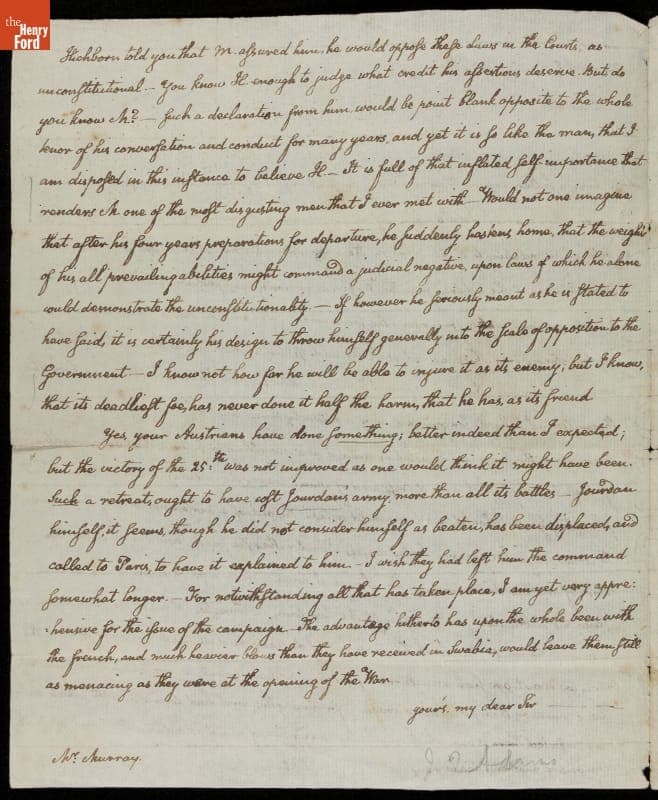 the
Henry
Ford
Hichborn told you that M. assured him, he would oppose these Laws in the Courts, as
unconstitutional. — You know H. enough to judge what credit his assertions deserve. But do
you know M.? — Such a declaration from him, would be point blank opposite to the whole
tenor of his conversation and conduct for many years, and yet it is so like the man, that I
am disposed in this instance to believe H — It is full of that inflated self-importance that
renders M. one of the most disgusting men that I ever met with — Would not one imagine
that after his four years preparations for departure, he suddenly hastens home, that the weight
of his all prevailing abilities might command a judicial negative, upon laws of which he alone
could demonstrate the unconstitutionality. — If however he seriously meant as he is stated to
have said, it is certainly his design to throw himself generally into the scale of opposition to the
Government — I know not how far he will be able to injure it as its enemy; but I know,
that its deadliest foe, has never done it half the harm, that he has, as its friend
Yes, your Austrians have done something; better indeed than I expected;
but the victory of the 25.th was not improved as one would think it might have been.
Such a retreat, ought to have cost Jourdan's army, more than all its battles — Jourdan
himself, it seems, though he did not consider himself as beaten, has been displaced, and
called to Paris, to have it explained to him. — I wish they had left him the command
somewhat longer. — For notwithstanding all that has taken place, I am yet very appre:
:hensive for the issue of the campaign — The advantage hitherto has upon the whole been with
the french, and much heavier blows than they have received in Swabia, would leave them still
as menacing as they were at the opening of the War
your's, my dear Sir
J Q Adams
Mr. Murray.